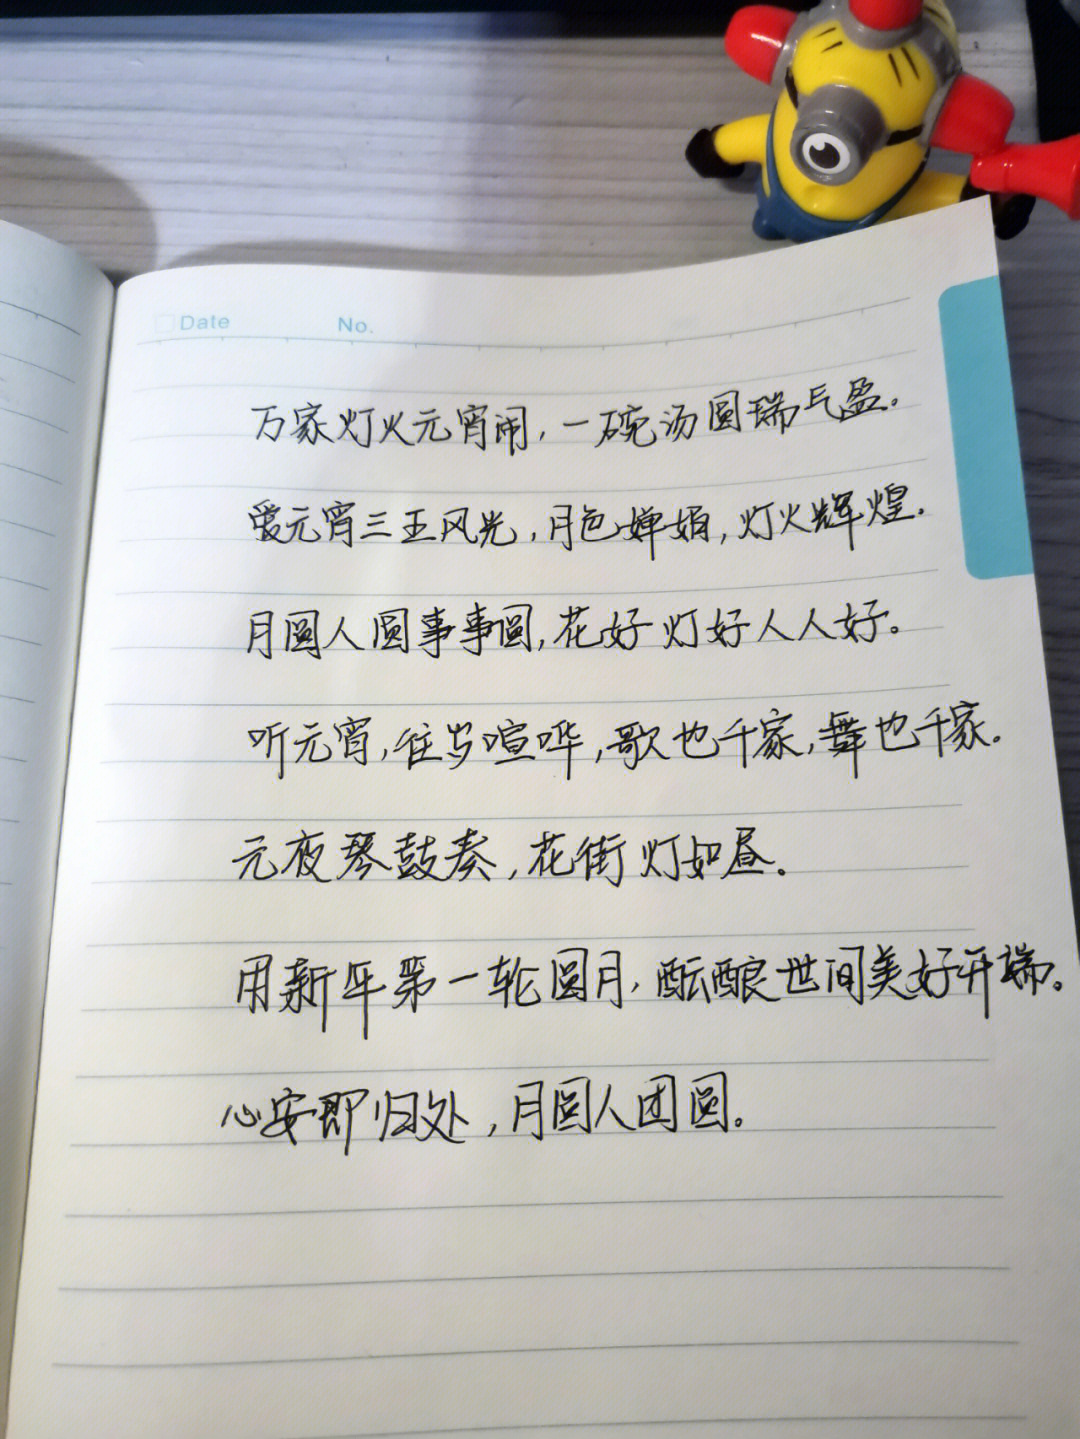 Date No.
万家灯火元宵闹,一碗汤圆瑞气盈.
爱元宵三五风光,月色婵娟,灯火辉煌.
月圆人圆事事圆,花好灯好人人好。
听元宵,往岁喧哗,歌也千家,舞也千家.
元夜琴鼓奏,花街灯如昼。
用新年第一轮圆月,酝酿世间美好开端。
心安即归处,月圆人团圆。